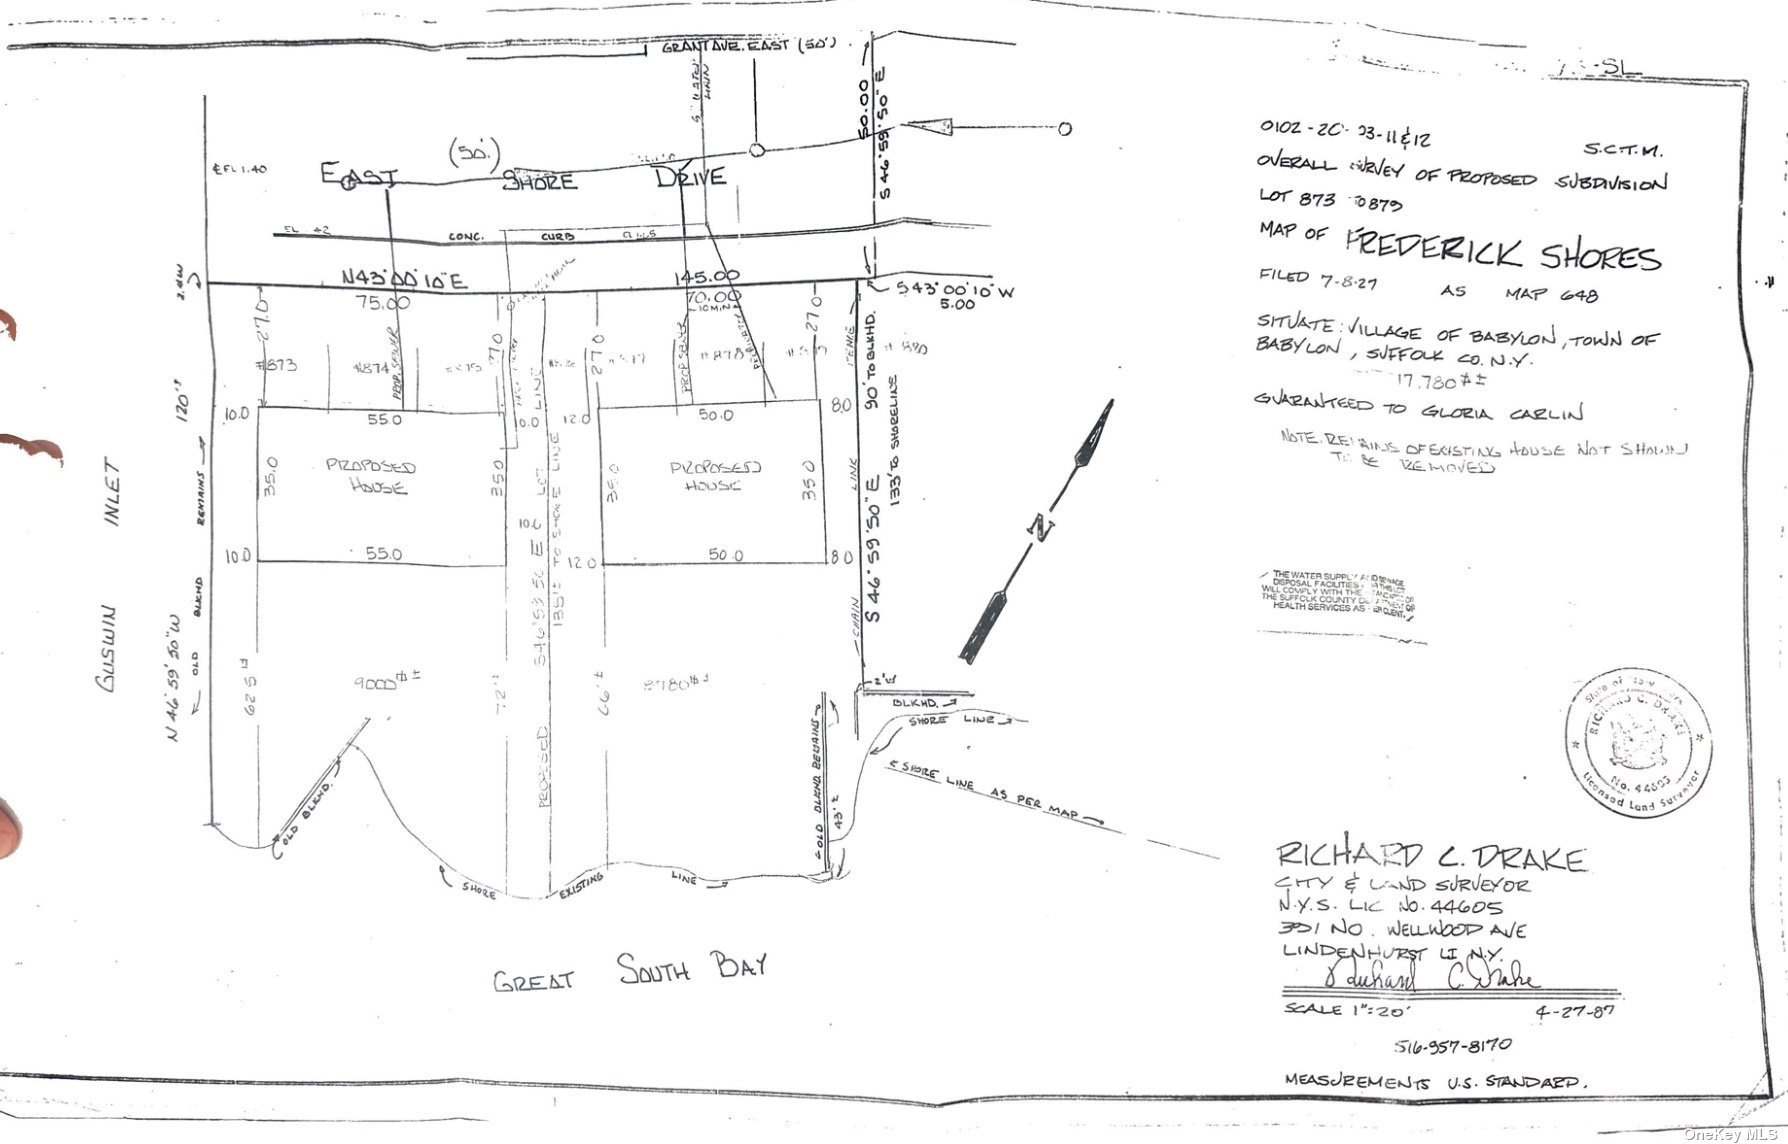 GRANT AVE. EAST (50')
50.00
S 46°59'50" E
℄ EL 1.40
(50')
EAST SHORE DRIVE
CONC. CURB
N43°00'10"E
145.00
75.00
70.00
S 43°00'10" W
5.00
27.0
27.0
27.0
27.0
#873
#874
#878
PROP. SEWER
10.0
55.0
12.0
50.0
8.0
120'±
PROPOSED HOUSE
35.0
35.0
PROPOSED HOUSE
35.0
35.0
10.0
55.0
10.0
12.0
50.0
8.0
GUSWIN INLET
OLD BLKHD REMAINS
N 46°59'50"W
CHAIN LINK FENCE
S 46°59'50" E
90' TO BLKHD.
133' TO SHORELINE
PROPOSED S46°59'50 E LOT LINE
135'± TO SHORE LINE
9000#±
8780#±
72'±
66'±
BLKHD.
SHORE LINE
OLD BLKHD REMAINS
43'±
SHORE LINE AS PER MAP
OLD BLKHD.
SHORE EXISTING LINE
GREAT SOUTH BAY
N
S.C.T.M.
OVERALL SURVEY OF PROPOSED SUBDIVISION
LOT 873 TO 879
MAP OF FREDERICK SHORES
FILED 7-8-27 AS MAP 648
SITUATE: VILLAGE OF BABYLON, TOWN OF
BABYLON, SUFFOLK CO. N.Y.
17.780#±
GUARANTEED TO GLORIA CARLIN
NOTE: REMAINS OF EXISTING HOUSE NOT SHOWN
TO BE REMOVED
THE WATER SUPPLY AND SEWAGE
DISPOSAL FACILITIES
WILL COMPLY WITH THE
THE SUFFOLK COUNTY DEPARTMENT OF
HEALTH SERVICES
State of New York
RICHARD C. DRAKE
No. 44605
Licensed Land Surveyor
RICHARD C. DRAKE
CITY & LAND SURVEYOR
N.Y.S. LIC NO. 44605
391 NO. WELLWOOD AVE
LINDENHURST LI N.Y.
Richard C. Drake
SCALE 1"=20' 4-27-87
516-957-8170
MEASUREMENTS U.S. STANDARD.
OneKey MLS